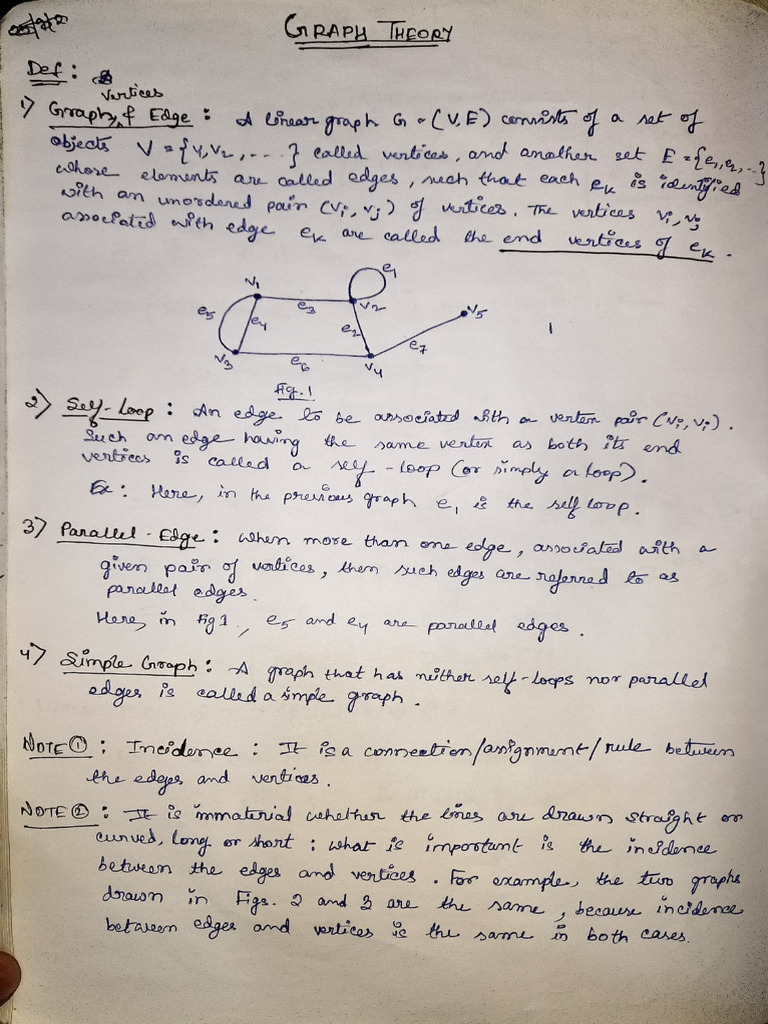 GRAPH THEORY
Def:
Vertices
1) Graph, & Edge : A linear graph G = (V, E) consists of a set of
objects V = {v1, v2, ....} called vertices, and another set E = {e1, e2, ...}
whose elements are called edges, such that each ek is identified
with an unordered pair (vi, vj) of vertices. The vertices vi, vj
associated with edge ek are called the end vertices of ek.
e1
v1 v2 v5
e5 e4 e3 e2 e7
v3 e6 v4
Fig. 1
2) Self-Loop : An edge to be associated with a vertex pair (vi, vi).
Such an edge having the same vertex as both its end
vertices is called a self-loop (or simply a loop).
Ex: Here, in the previous graph e1 is the self loop.
3) Parallel-Edge : When more than one edge, associated with a
given pair of vertices, then such edges are referred to as
parallel edges.
Here, in Fig 1., e5 and e4 are parallel edges.
4) Simple Graph : A graph that has neither self-loops nor parallel
edges is called a simple graph.
NOTE ① : Incidence : It is a connection/assignment/rule between
the edges and vertices.
NOTE ② : It is immaterial whether the lines are drawn straight or
curved, long or short : what is important is the incidence
between the edges and vertices. For example, the two graphs
drawn in Figs. 2 and 3 are the same, because incidence
between edges and vertices is the same in both cases.